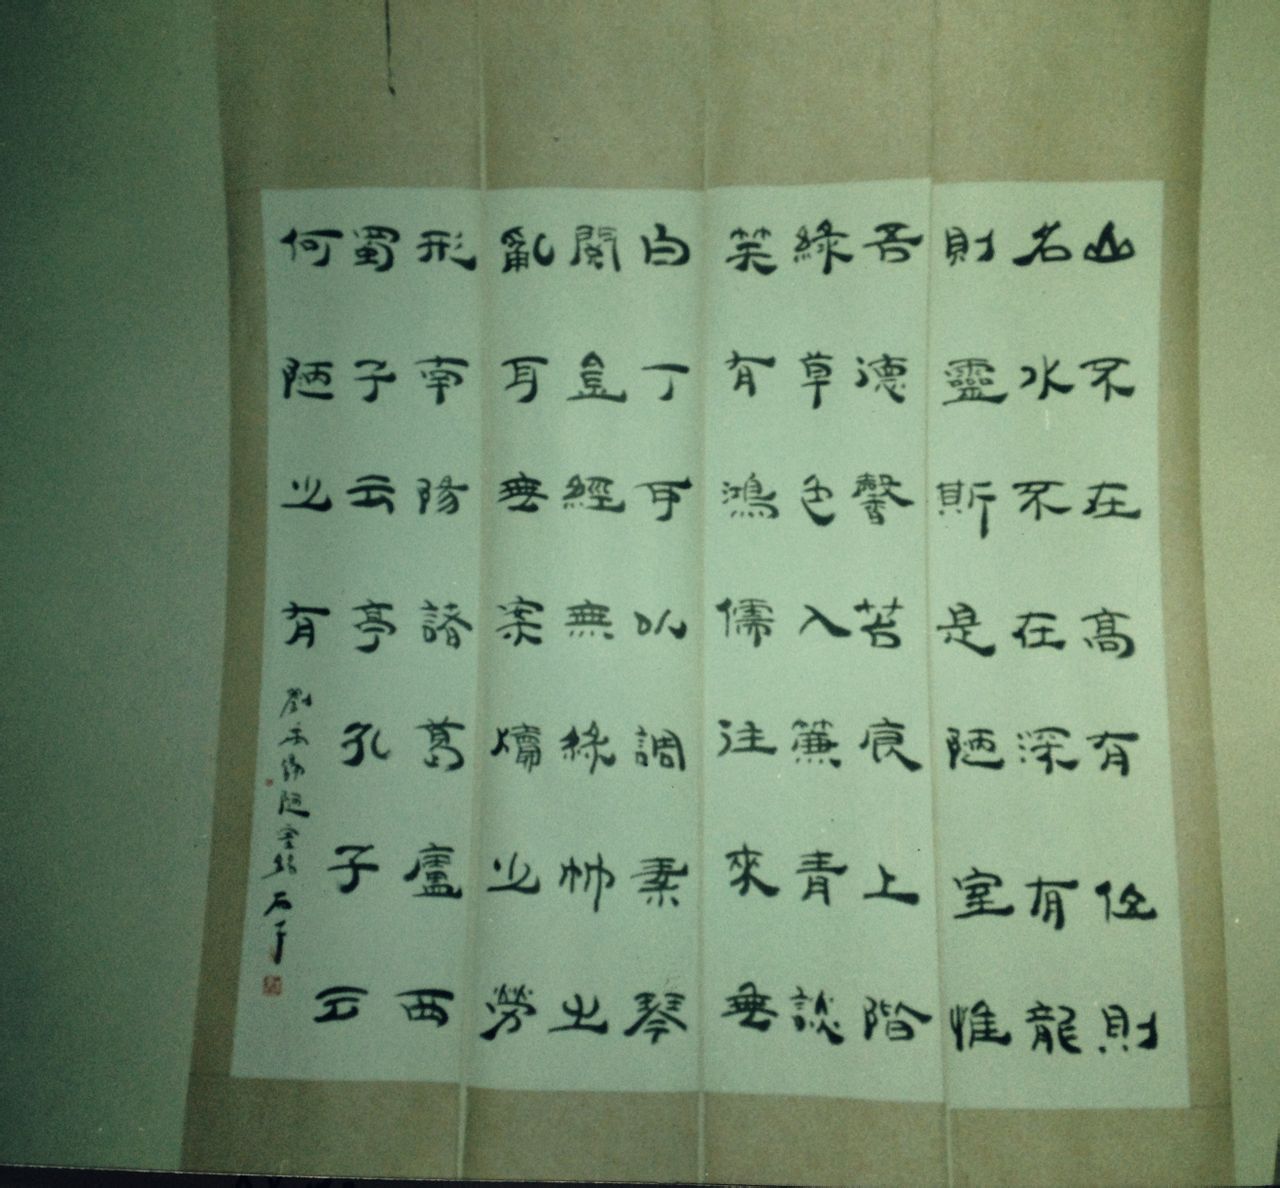 山不在高有仙則
名水不在深有龍
則靈斯是陋室惟
吾德馨苔痕上階
綠草色入簾青談
笑有鴻儒往來無
白丁可以調素琴
閱金經無絲竹之
亂耳無案牘之勞
形南陽諸葛廬西
蜀子云亭孔子云
何陋之有
劉禹錫陋室銘